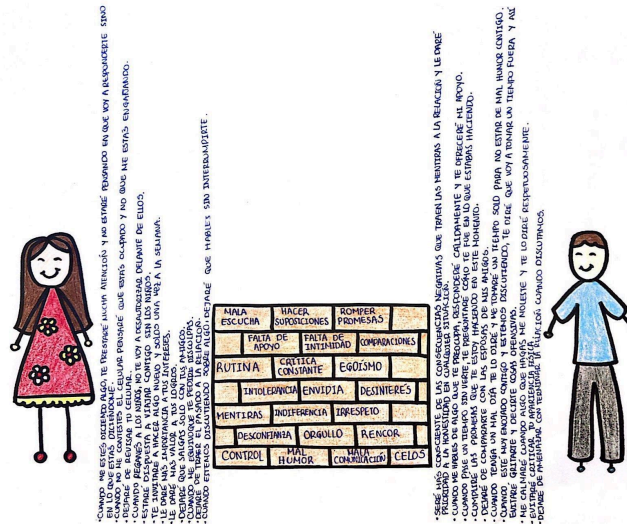 • CUANDO ME ESTÉS DICIENDO ALGO, TE PRESTARÉ MUCHA ATENCIÓN Y NO ESTARÉ PENSANDO EN QUE VOY A RESPONDERTE SINO
EN LO QUE ESTÁS DICIÉNDOME.
• CUANDO NO ME CONTESTES EL CELULAR PENSARÉ QUE ESTÁS OCUPADO Y NO QUE ME ESTÁS ENGAÑANDO.
• DEJARÉ DE REVISAR TU CELULAR.
• CUANDO REGAÑES A LOS NIÑOS, NO TE VOY A DESAUTORIZAR DELANTE DE ELLOS.
• ESTARÉ DISPUESTA A VIAJAR CONTIGO SIN LOS NIÑOS.
• TE INVITARÉ A HACER ALGO NUEVO Y SOLO UNA VEZ A LA SEMANA.
• LE DARÉ MÁS IMPORTANCIA A TUS INTERESES.
• LE DARÉ MÁS VALOR A TUS LOGROS.
• DEJARÉ QUE SALGAS SOLO CON TUS AMIGOS.
• CUANDO ME EQUIVOQUE TE PEDIRÉ DISCULPAS.
• DEJARÉ DE TRAER EL PASADO A LA RELACIÓN.
• CUANDO ESTEMOS DISCUTIENDO SOBRE ALGO, DEJARÉ QUE HABLES SIN INTERRUMPIRTE.
MALA ESCUCHA HACER SUPOSICIONES ROMPER PROMESAS
FALTA DE APOYO FALTA DE INTIMIDAD COMPARACIONES
RUTINA CRÍTICA CONSTANTE EGOÍSMO
INTOLERANCIA ENVIDIA DESINTERÉS
MENTIRAS INDIFERENCIA IRRESPETO
DESCONFIANZA ORGULLO RENCOR
CONTROL MAL HUMOR MALA COMUNICACIÓN CELOS
• SERÉ MÁS CONSCIENTE DE LAS CONSECUENCIAS NEGATIVAS QUE TRAEN LAS MENTIRAS A LA RELACIÓN Y LE DARÉ
PRIORIDAD A LA HONESTIDAD EN CUALQUIER SITUACIÓN.
• CUANDO ME HABLES DE ALGO QUE TE PREOCUPA, RESPONDERÉ CÁLIDAMENTE Y TE OFRECERÉ MI APOYO.
• CUANDO PASE UN TIEMPO SIN VERTE, TE PREGUNTARÉ CÓMO TE FUE EN LO QUE ESTABAS HACIENDO.
• CUMPLIRÉ LA PROMESAS QUE TE ESTOY HACIENDO EN ESTE MOMENTO.
• DEJARÉ DE COMPARARTE CON LAS ESPOSAS DE MIS AMIGOS.
• CUANDO TENGA UN MAL DÍA TE LO DIRÉ Y TOMARÉ UN TIEMPO SOLO PARA NO ESTAR DE MAL HUMOR CONTIGO.
• CUANDO ESTÉ MUY ENOJADO CONTIGO Y ESTEMOS DISCUTIENDO, TE DIRÉ QUE VOY A TOMAR UN TIEMPO FUERA Y ASÍ
EVITARÉ GRITARTE Y DECIRTE COSAS OFENSIVAS.
• ME CALMARÉ CUANDO ALGO QUE HAGAS ME MOLESTE Y TE LO DIRÉ RESPETUOSAMENTE.
• EVITARÉ TU APARIENCIA
• DEJARÉ DE AMENAZAR CON TERMINAR LA RELACIÓN CUANDO DISCUTAMOS.